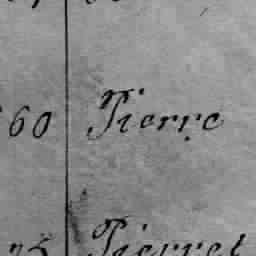 60 Pierre
25 Pierres